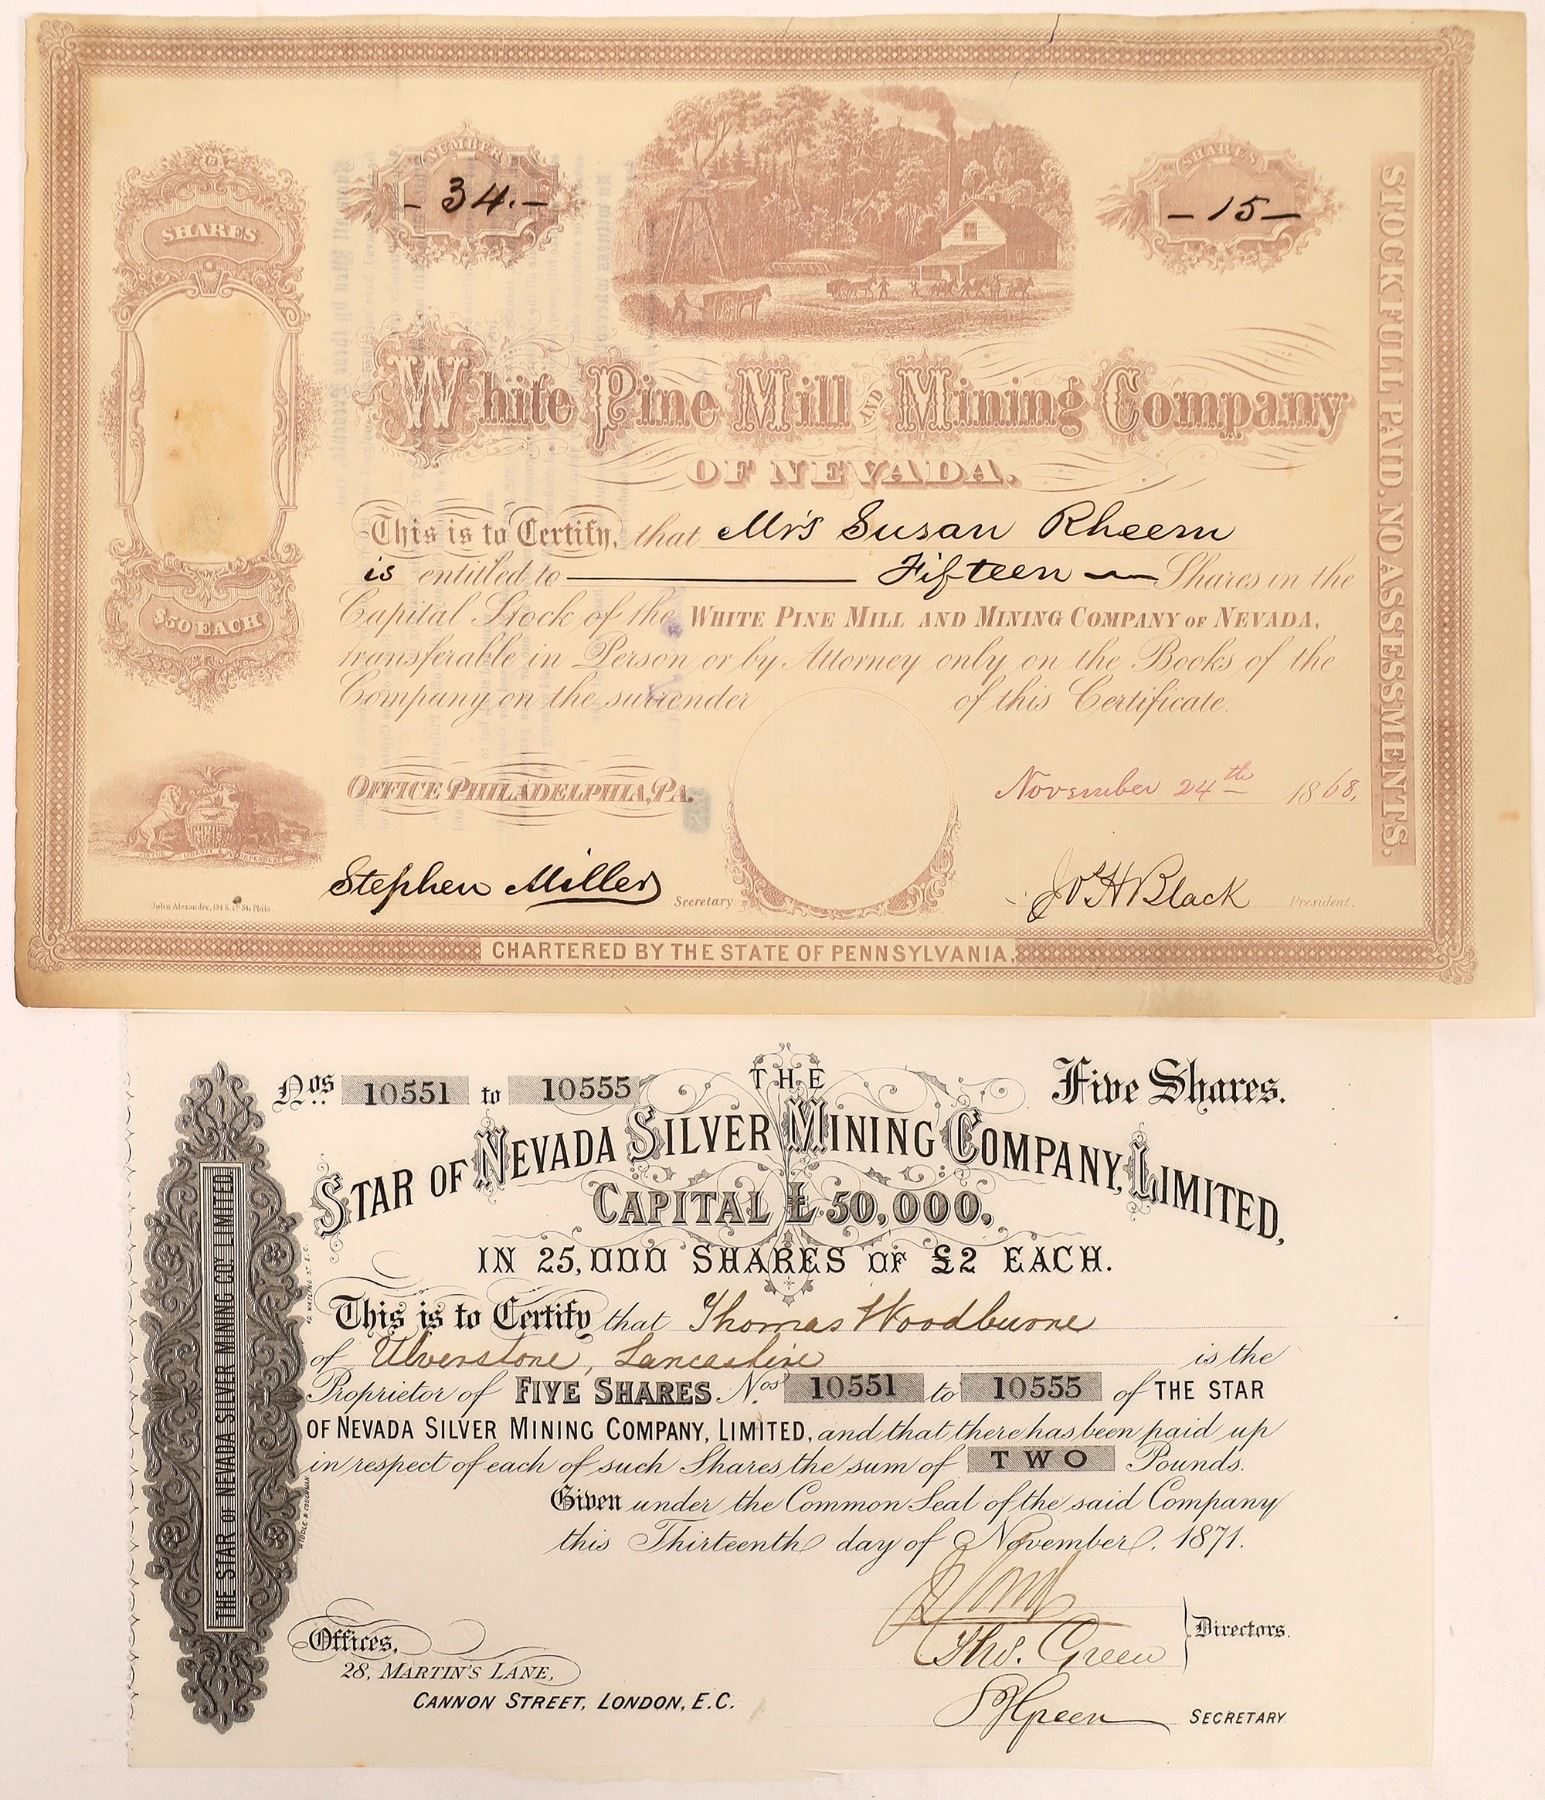 NUMBER
- 34. -
SHARES
- 15 -
SHARES
$50 EACH
STOCK FULL PAID, NO ASSESSMENTS.
White Pine Mill AND Mining Company
OF NEVADA.
This is to Certify, that Mrs Susan Rheem
is entitled to Fifteen Shares in the
Capital Stock of the WHITE PINE MILL AND MINING COMPANY OF NEVADA,
transferable in Person or by Attorney only on the Books of the
Company on the surrender of this Certificate.
OFFICE PHILADELPHIA, PA.
November 24th 1868.
Stephen Miller Secretary
Jos H Black President.
John Alexander, 134 S. 4th St. Phila.
CHARTERED BY THE STATE OF PENNSYLVANIA.
Nos. 10551 to 10555
THE
Five Shares.
STAR OF NEVADA SILVER MINING COMPANY, LIMITED,
CAPITAL £50,000.
IN 25,000 SHARES OF £2 EACH.
This is to Certify that Thomas Woodburne
of Ulverstone, Lancashire is the
Proprietor of FIVE SHARES Nos. 10551 to 10555 of THE STAR
OF NEVADA SILVER MINING COMPANY, LIMITED, and that there has been paid up
in respect of each of such Shares, the sum of TWO Pounds.
Given under the Common Seal of the said Company
this Thirteenth day of November, 1871.
Thos. Green
Directors.
Offices,
28, MARTIN'S LANE,
CANNON STREET, LONDON, E.C.
S J Green SECRETARY
THE STAR OF NEVADA SILVER MINING COY. LIMITED